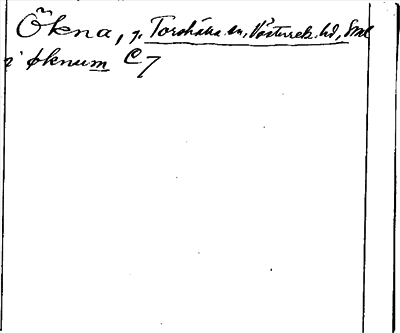 Ökna, g. Torshälla sn, Västerrek. hd, Sml
i øknum C7